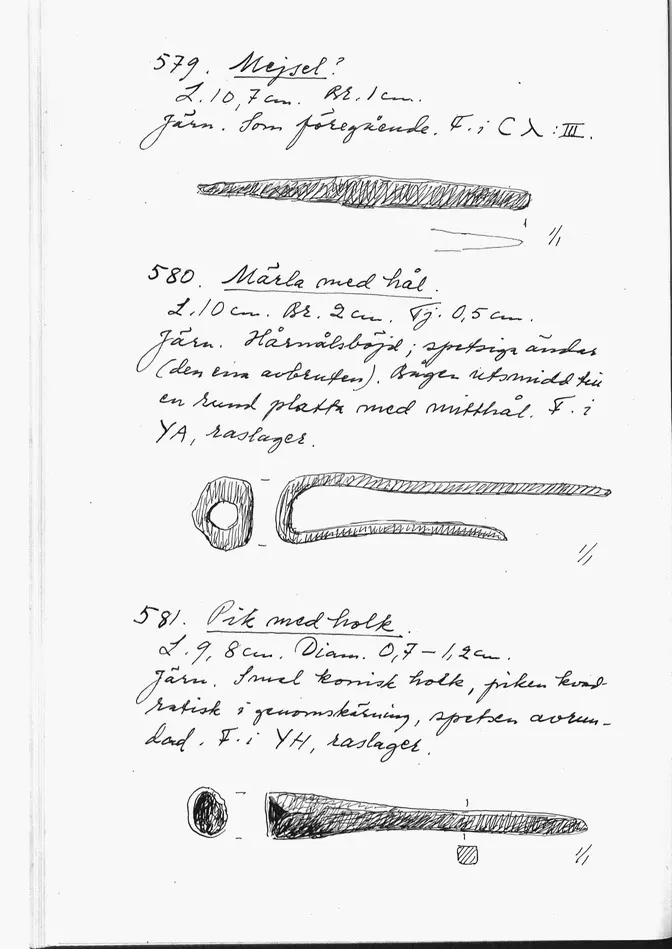 579. Mejsel?
L. 10,7 cm. Br. 1 cm.
Järn. Som föregående. F. i C λ : III.
1/1
580. Märla med hål.
L. 10 cm. Br. 2 cm. Tj. 0,5 cm.
Järn. Hårnålsböjd; spetsiga ändar
(den ena avbruten). Bågen utsmidd till
en rund platta med mitthål. F. i
YA, raslager.
1/1
581. Pik med holk.
L. 9,8 cm. Diam. 0,7 – 1,2 cm.
Järn. Smal konisk holk, piken kvad-
ratisk i genomskärning, spetsen avrun-
dad. F. i YH, raslager.
1/1